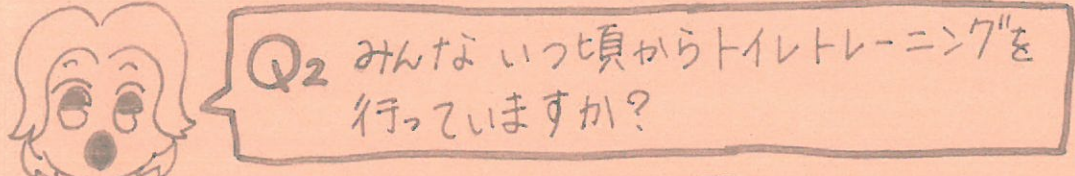 Q2 みんないつ頃からトイレトレーニングを
行っていますか?